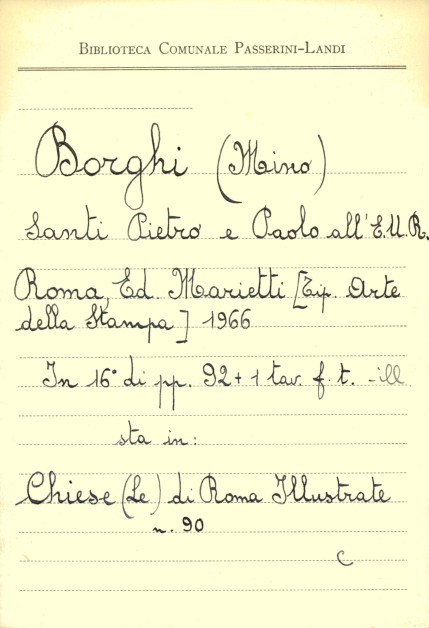 BIBLIOTECA COMUNALE PASSERINI-LANDI
Borghi (Mino)
Santi Pietro e Paolo all'E.U.R.
Roma, Ed. Marietti [Tip. Arte
della Stampa] 1966
In 16° di pp. 92 + 1 tav. f. t. - ill
sta in:
Chiese (Le) di Roma Illustrate
n. 90
C